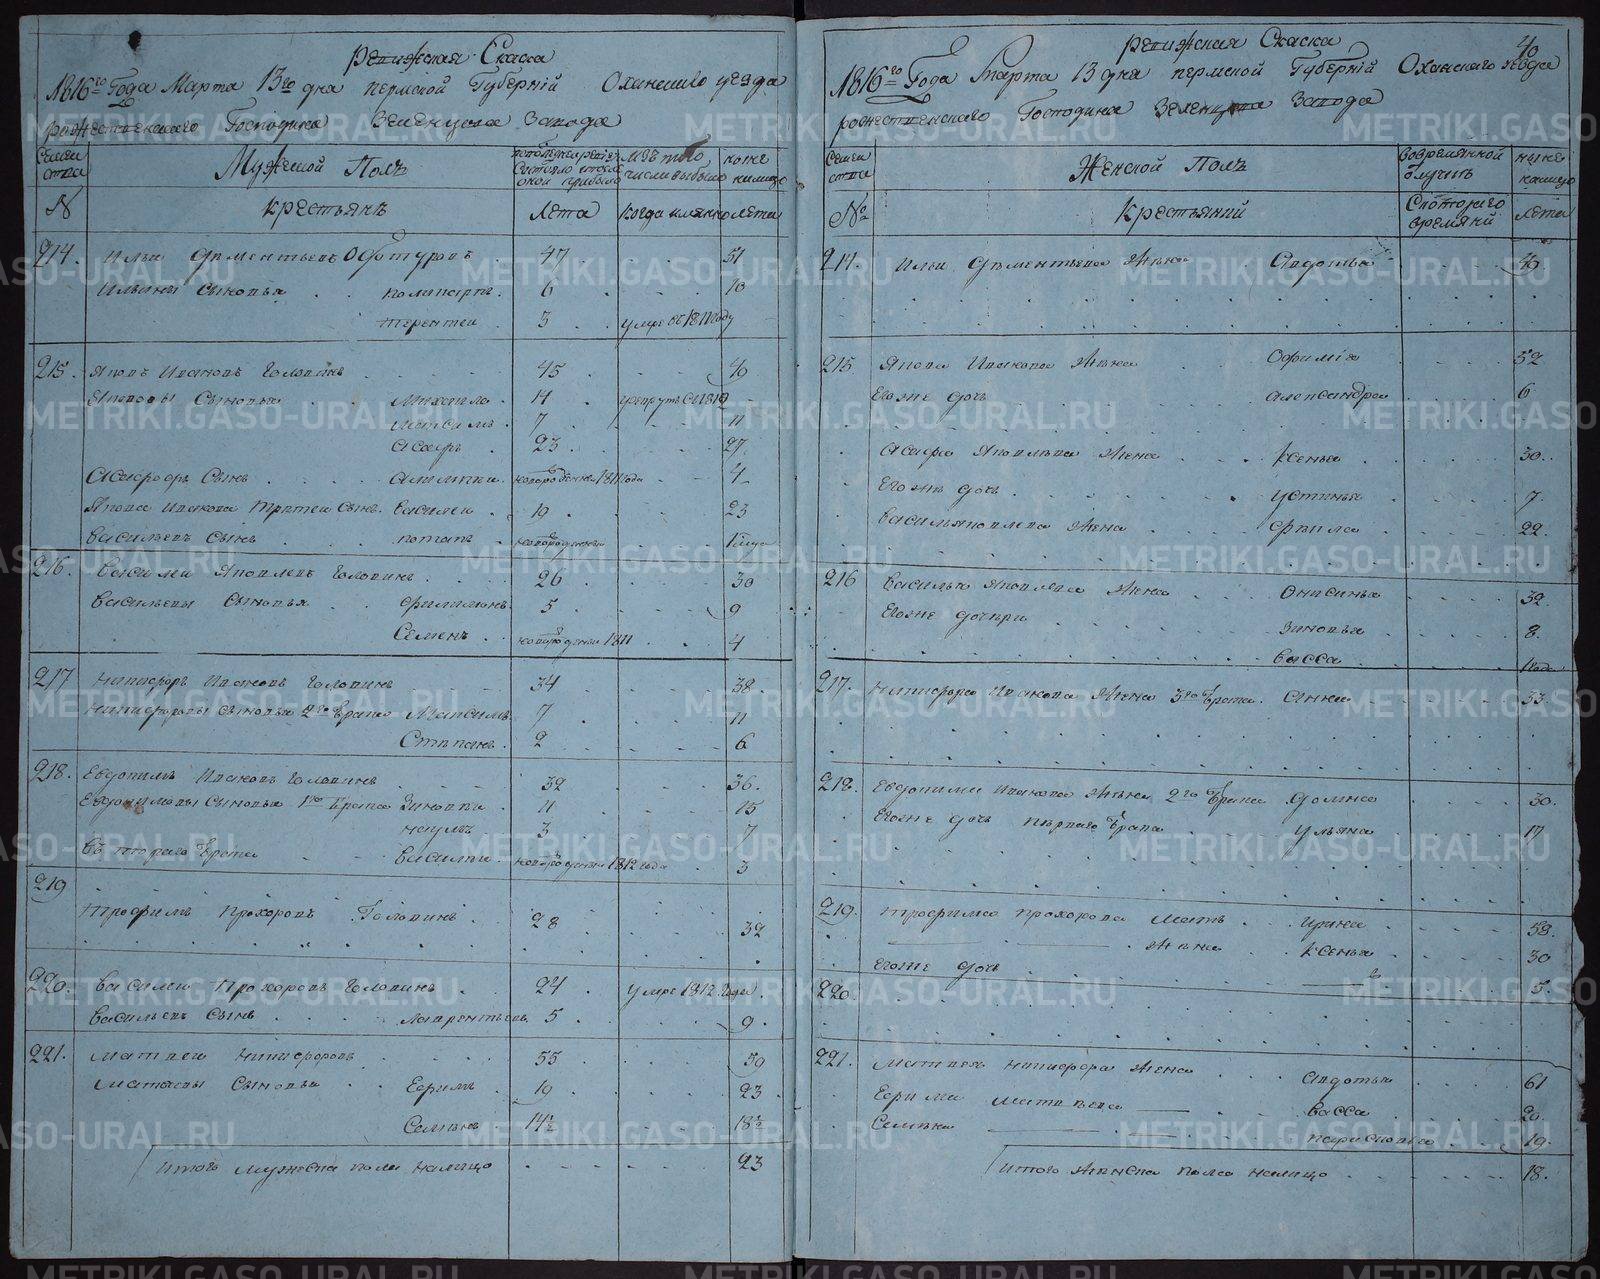 Ревижская Скаска
1816го Года Марта 13го дня пермской Губерній Оханского уезда
рождественского Господина Зеленцова Завода
Семеи ства
Мужеской Полъ
ныне налицо
№
крестьянъ
Лета
когда именно
лета
214. Ильи Дементьевъ 47 51
Ильины Сыновья 6 10
терентеи 3 умре въ 1811 году
215. Яковъ Ивановъ Головинъ 45
Яковлевы Сыновья Михаила 14
Максимъ 7 11
Асафъ 23 27
Асафовъ Сынъ новорожденъ 1811 года 4
Якова Иванова третеи Сынъ Василеи 19 23
Васильевъ Сынъ потапъ новорожденныи
216. Василеи Яковлевъ Головинъ 26 30
Васильевы Сыновья филимонъ 5 9
Семенъ новорожденныи 1811 4
217 Никифоръ Ивановъ Головинъ 34 38
Никифоровы Сыновья 2го брака Максимъ 7 11
Степанъ 2 6
218. Евдокимъ Ивановъ Головинъ 32 36
Евдокимовы Сыновья 1го брака Зиновеи 11 15
наумъ 3 7
втораго брака Василеи новорожденныи 1812 года 3
219
трофимъ Прохоровъ Головинъ 28 32
220. Василеи Прохоровъ Головинъ 24 умре 1812 Года
Васильевъ Сынъ Лаврентьевъ 5 9
221. Матвеи Никифоровъ 55 59
Матвеевы Сыновья Ефимъ 19 23
Семенъ 14½ 18½
Итого мужеска пола налицо 23
40
Ревижская Скаска
1816го Года Марта 13 дня пермской Губерній Оханского уезда
рождественского Господина Зеленцова Завода
Семеи ства
Женской Полъ
вовремянной отлучкѣ
ныне налицо
№
Крестьяний
Скотораго времяни
лета
214. Ильи Дементьева жена Авдотья 49
215. Якова Иванова жена Офимія 52
Егоже дочь александра 6
Асафа Яковлева жена Ксенья 30
Егоже дочь устинья 7
Василья яковлева жена 22
216 Василья Яковлева жена Онисинья 32
Егоже дочери Зиновья 8
васса
217. Никифора Иванова жена 3го брака анна 33
218. Евдокима Иванова жена 2го брака домна 30
Егоже дочь перваго брака ульяна 17
219. трофима прохорова мать ирина 58
жена Ксенья 30
Егоже дочь 5
220
221. Матвея никифора жена авдотья 61
Ефима матвеева васса 20
Семена 19
Итого женска пола налицо 18
METRIKI.GASO-URAL.RU